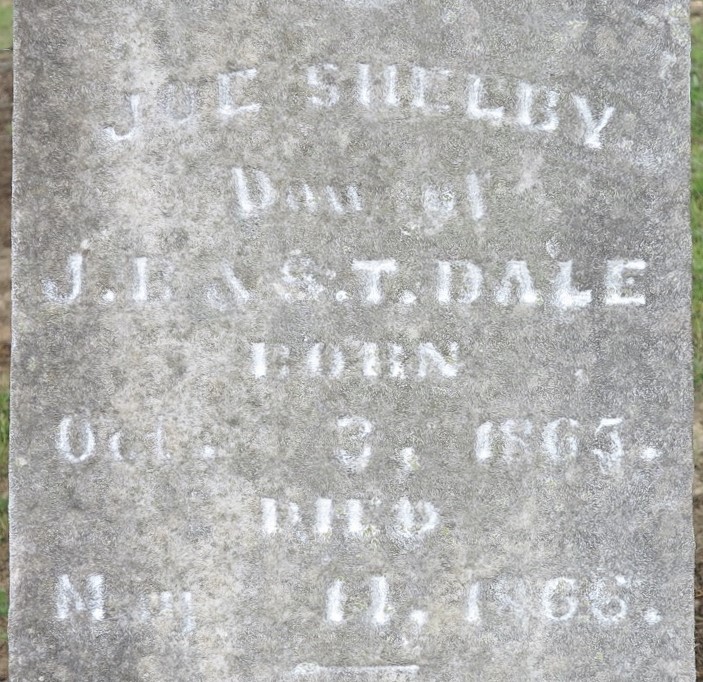 JOE SHELBY
Dau of
J. & S. T. DALE
BORN
Oct. 3, 1865.
DIED
May 11, 1866.